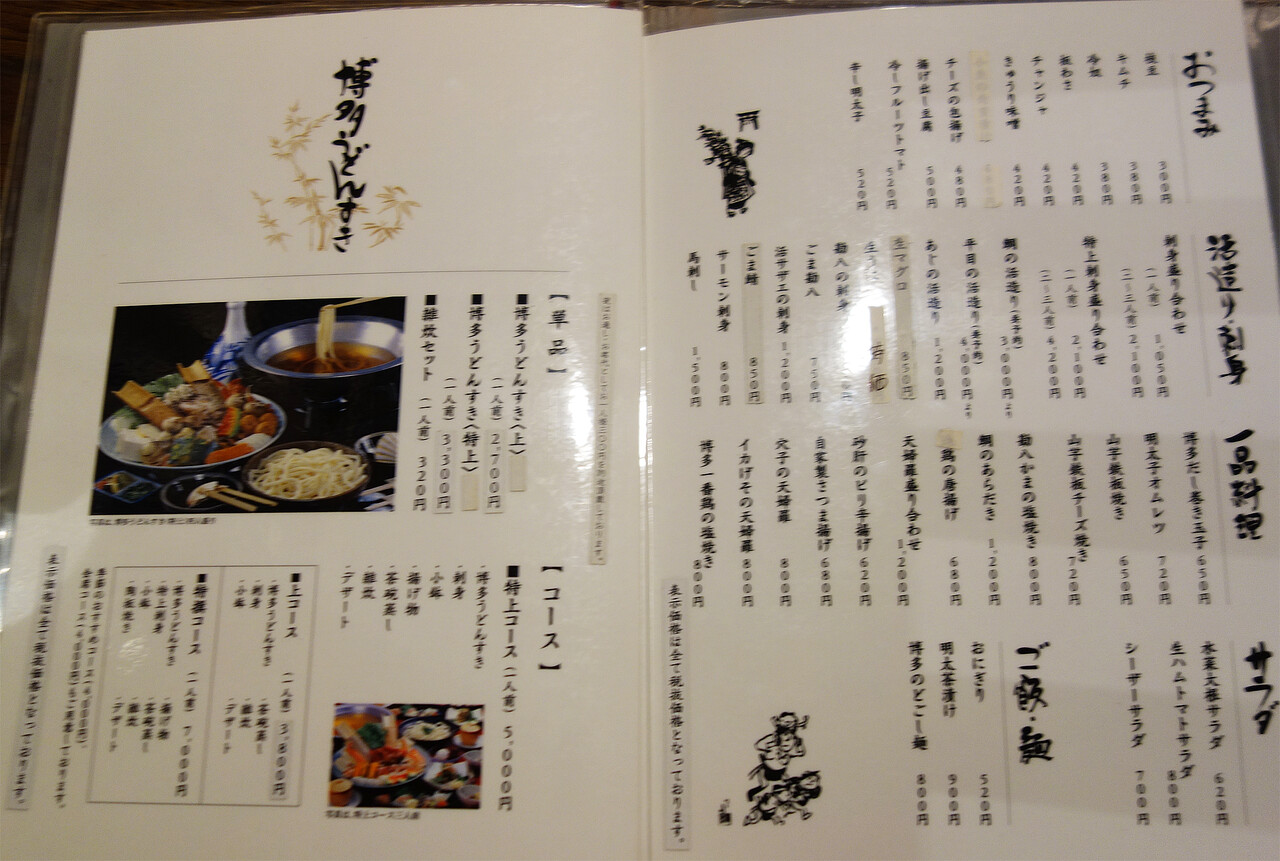 おつまみ
枝豆 300円
キムチ 380円
冷奴 380円
板わさ 420円
チャンジャ 420円
きゅうり味噌 420円
チーズの包揚げ 480円
揚げ出し豆腐 500円
冷しフルーツトマト 520円
辛し明太子 520円
活造り・刺身
刺身盛り合わせ
(一人前) 1,050円
(二〜三人前) 2,100円
特上刺身盛り合わせ
(一人前) 2,100円
(二〜三人前) 4,200円
鯛の活造り 3,000円より
平目の活造り 4,000円より
あじの活造り 1,200円
生マグロ 850円
勘八の刺身
ごま勘八 750円
活サザエの刺身 1,200円
ごま鯖 850円
サーモン刺身 800円
馬刺し 1,500円
一品料理
博多だし巻き玉子 650円
明太子オムレツ 720円
山芋鉄板焼き 650円
山芋鉄板チーズ焼き 720円
勘八かまの塩焼き 800円
鯛のあらだき 1,200円
鶏の唐揚げ 680円
天婦羅盛り合わせ 1,200円
砂肝のピリ辛揚げ 620円
自家製さつま揚げ 680円
穴子の天婦羅 800円
イカげその天婦羅 800円
博多一番鶏の塩焼き 800円
サラダ
水菜大根サラダ 620円
生ハムトマトサラダ 800円
シーザーサラダ 700円
ご飯・麺
おにぎり 520円
明太茶漬け 900円
博多のどごし麺 800円
表示価格は全て税抜価格となっております。
博多うどんすき
【単品】
■博多うどんすき〈上〉
(一人前) 2,700円
■博多うどんすき〈特上〉
(一人前) 3,300円
■雑炊セット (一人前) 320円
【コース】
■特上コース(一人前) 5,000円
・博多うどんすき
・刺身
・小鉢
・揚げ物
・茶碗蒸し
・雑炊
・デザート
写真は、特上コース三人前
■上コース (一人前) 3,800円
・博多うどんすき
・刺身
・小鉢
・茶碗蒸し
・雑炊
・デザート
■特撰コース (一人前) 7,000円
・博多うどんすき
・特上刺身
・小鉢
・陶板焼き
・揚げ物
・茶碗蒸し
・雑炊
・デザート
表示価格は全て税抜価格となっております。